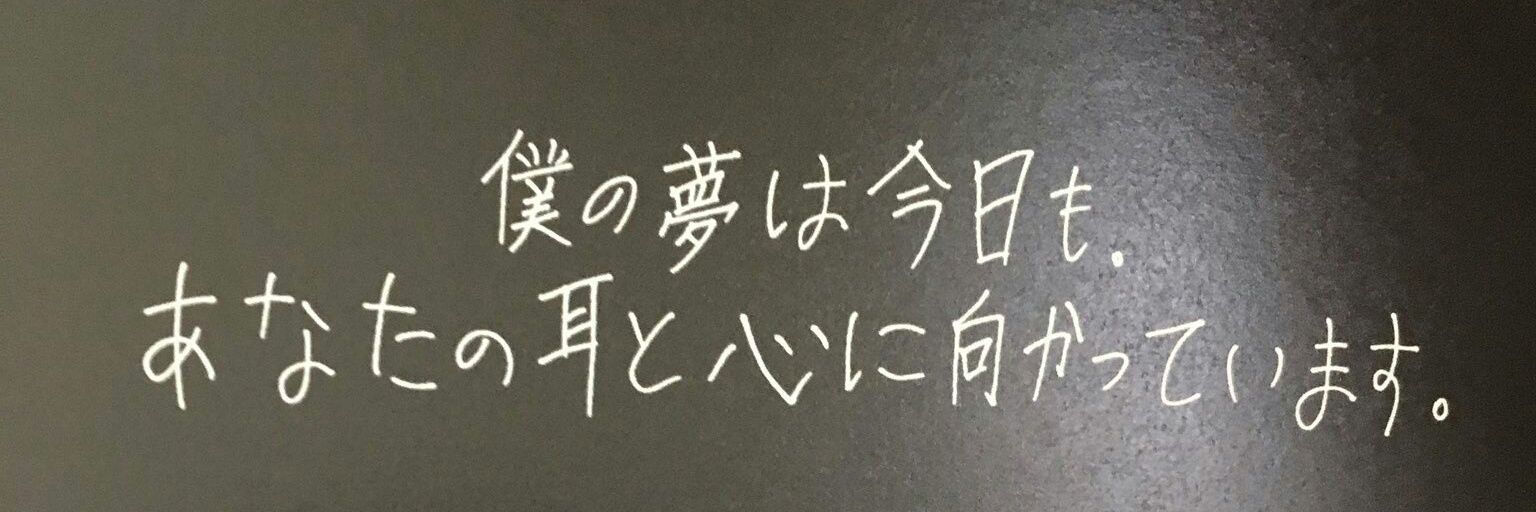 僕の夢は今日も.
あなたの耳と心に向かっています。